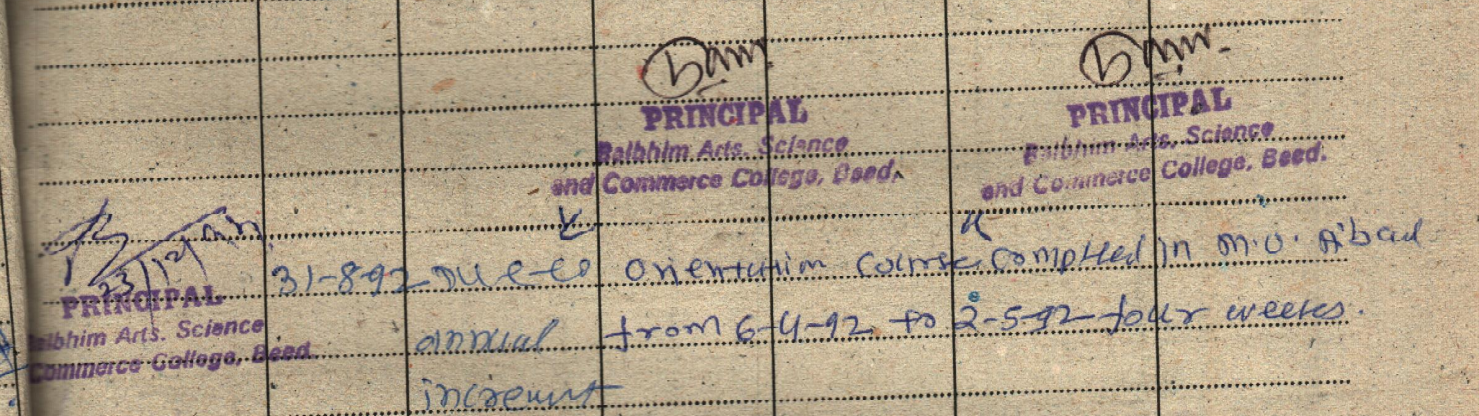 PRINCIPAL
Balbhim Arts, Science
and Commerce College, Beed.
PRINCIPAL
Balbhim Arts, Science
and Commerce College, Beed.
PRINCIPAL
Balbhim Arts. Science
Commerce College, Beed.
31-8-92 Due to
annual
increment
Orientation course compleed in M.U. A'bad
from 6-4-92 to 2-5-92 four weeks.